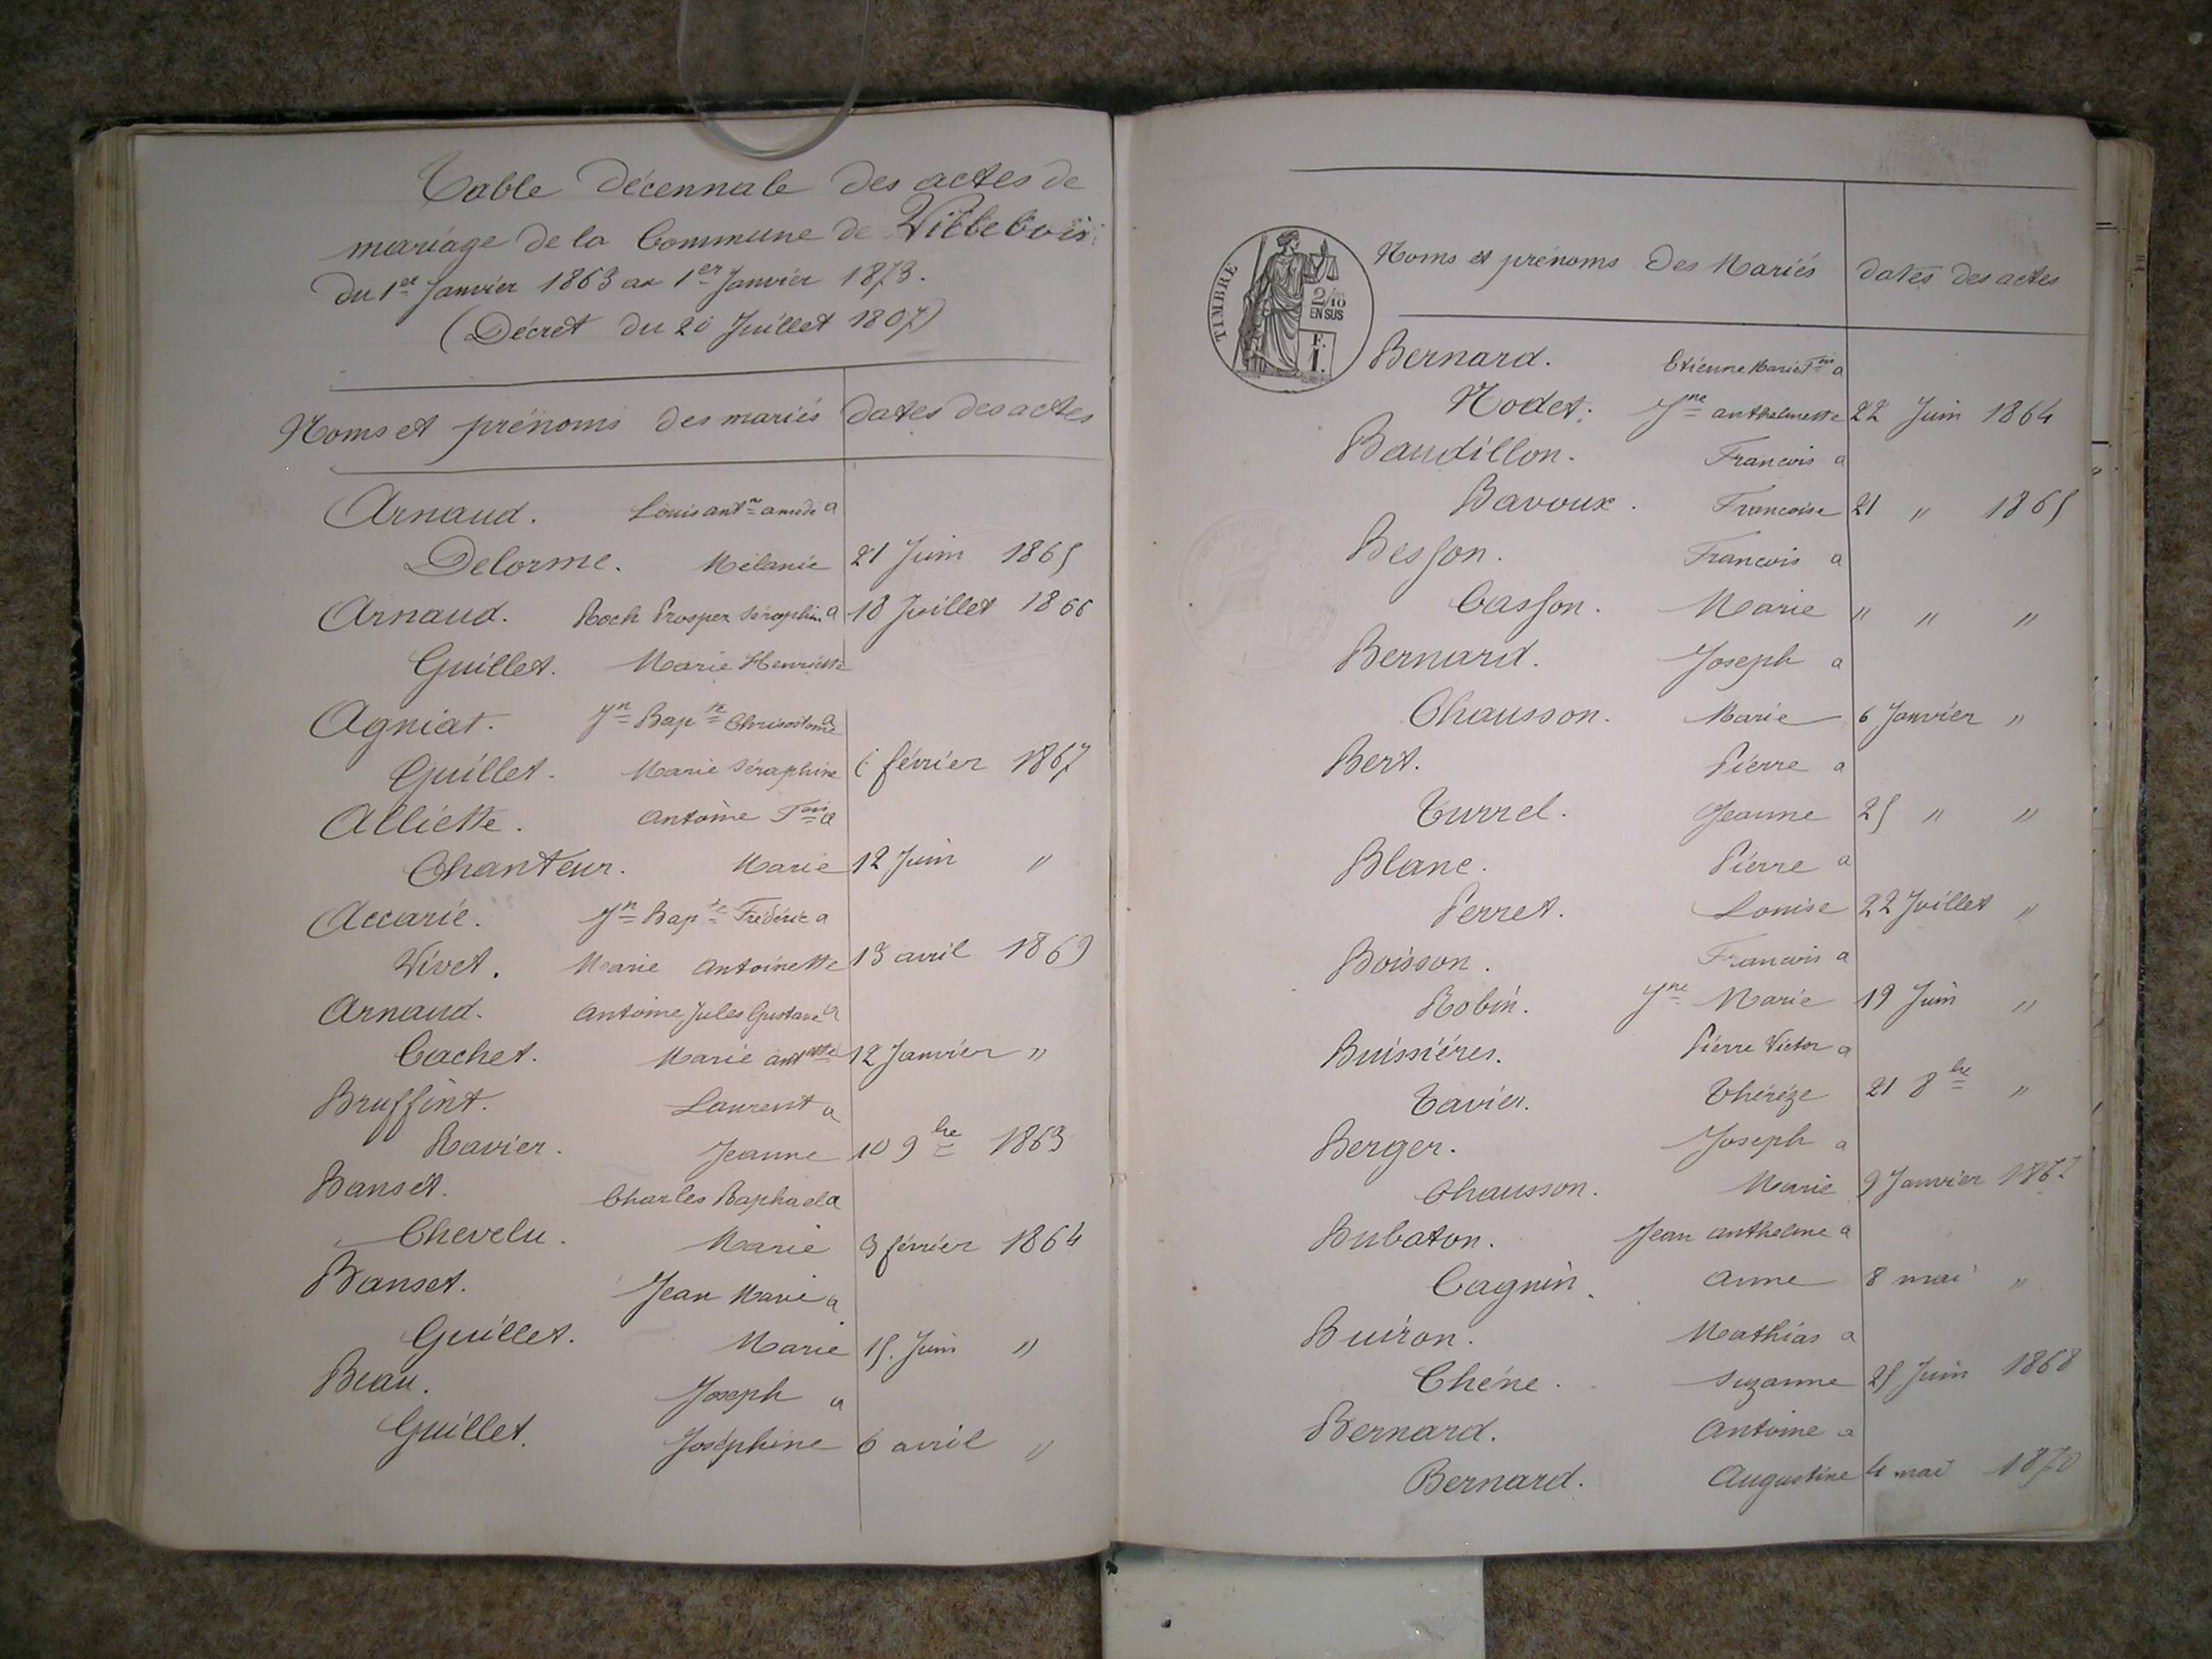 Table décennale des actes de
mariage de la Commune de Villebois
du 1er Janvier 1863 au 1er Janvier 1873.
(Décret du 20 Juillet 1807)
Noms et prénoms des mariés dates des actes
Arnaud. Louis antne amédé a
Delorme. Mélanie 21 Juin 1865
Arnaud. Roch Prosper Séraphin a 18 Juillet 1866
Guillet. Marie Henriette
Agniat. Jn Bapte Chrisostome a
Guillet. Marie Séraphine 6 février 1867
Alliette. Antoine Fois a
Chanteur. Marie 12 Juin "
Accarie. Jn Bapte Frédéric a
Vivet. Marie Antoinette 13 avril 1869
Arnaud. Antoine Jules Gustave a
Cachet. Marie antette 12 Janvier "
Bruffint. Laurent a
Ravier. Jeanne 10 9bre 1863
Banset. Charles Raphael a
Chevelu. Marie 3 février 1864
Banset. Jean Marie a
Guillet. Marie 15. Juin "
Beau. Joseph a
Guillet. Joséphine 6 avril "
TIMBRE
2/10
EN SUS
F.
1.
Noms et prénoms des Mariés dates des actes
Bernard. Etienne Marie Fois a
Nodet. Jne anthelmette 22 Juin 1864
Baudillon. Francois a
Bavoux. Francoise 21 " 1865
Besson. Francois a
Casson. Marie " " "
Bernard. Joseph a
Chausson. Marie 6 Janvier "
Bert. Pierre a
Turrel. Jeanne 25 " "
Blanc. Pierre a
Perret. Louise 22 Juillet "
Boisson. Francois a
Robin. Jne Marie 19 Juin "
Buissiéres. Pierre Victor a
Tavier. Thérèze 21 8bre "
Berger. Joseph a
Chausson. Marie 9 Janvier
Bubaton. Jean anthelme a
Cagnin. anne 8 mai "
Buiron. Mathias a
Chéne. Suzanne 25 Juin 1868
Bernard. Antoine a
Bernard. Augustine 4 mai 1870